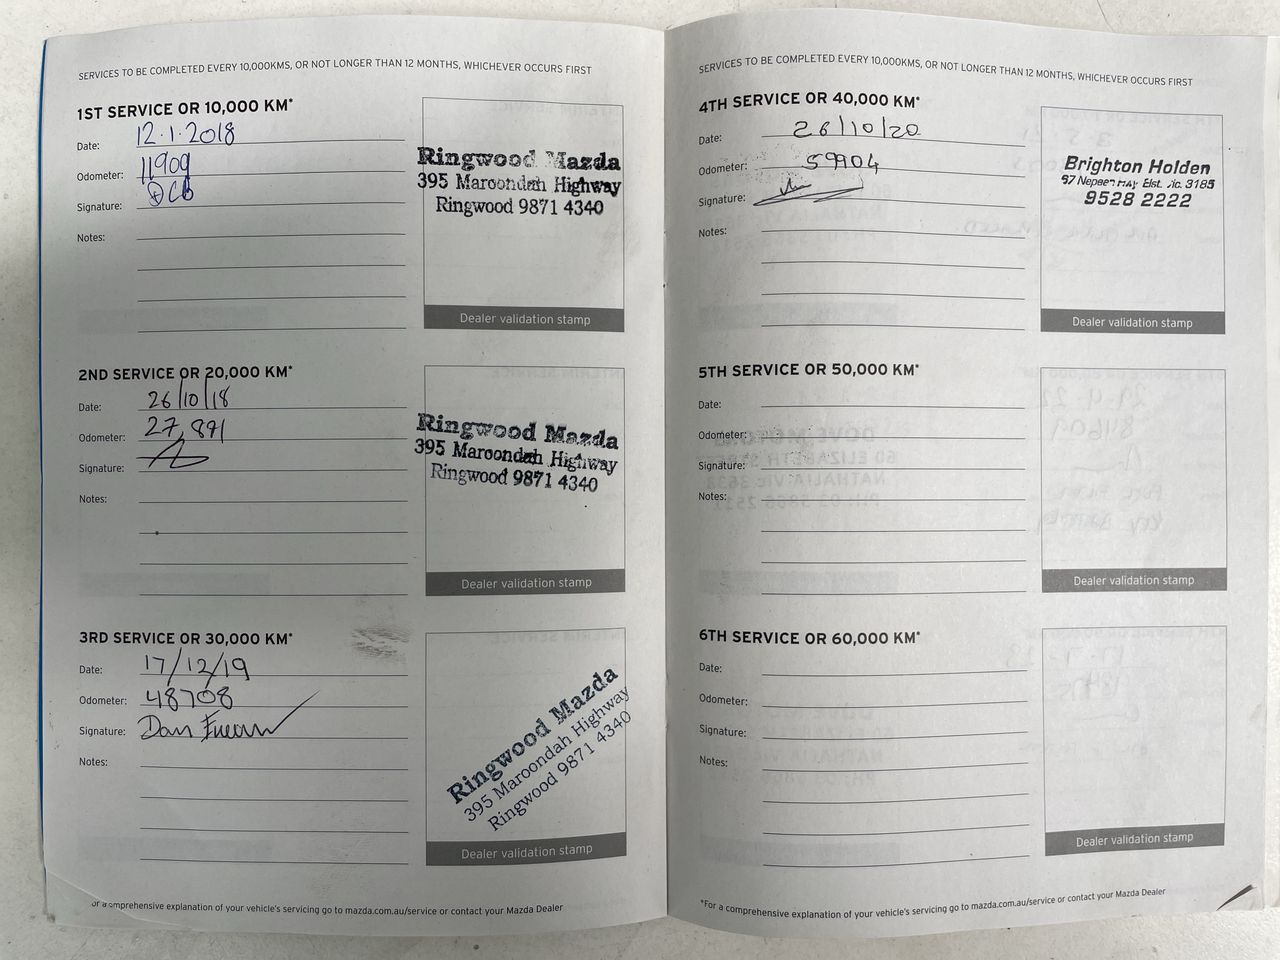 SERVICES TO BE COMPLETED EVERY 10,000KMS, OR NOT LONGER THAN 12 MONTHS, WHICHEVER OCCURS FIRST
1ST SERVICE OR 10,000 KM*
Date: 12.1.2018
Odometer: 11909
Signature:
Notes:
Ringwood Mazda
395 Maroondah Highway
Ringwood 9871 4340
Dealer validation stamp
2ND SERVICE OR 20,000 KM*
Date: 26/10/18
Odometer: 27,891
Signature:
Notes:
Ringwood Mazda
395 Maroondah Highway
Ringwood 9871 4340
Dealer validation stamp
3RD SERVICE OR 30,000 KM*
Date: 17/12/19
Odometer: 48708
Signature: Dan
Notes:
Ringwood Mazda
395 Maroondah Highway
Ringwood 9871 4340
Dealer validation stamp
comprehensive explanation of your vehicle's servicing go to mazda.com.au/service or contact your Mazda Dealer
SERVICES TO BE COMPLETED EVERY 10,000KMS, OR NOT LONGER THAN 12 MONTHS, WHICHEVER OCCURS FIRST
4TH SERVICE OR 40,000 KM*
Date: 26/10/20
Odometer: 59904
Signature:
Notes:
Brighton Holden
Vic. 3185
9528 2222
Dealer validation stamp
5TH SERVICE OR 50,000 KM*
Date:
Odometer:
Signature:
Notes:
Dealer validation stamp
6TH SERVICE OR 60,000 KM*
Date:
Odometer:
Signature:
Notes:
Dealer validation stamp
*For a comprehensive explanation of your vehicle's servicing go to mazda.com.au/service or contact your Mazda Dealer